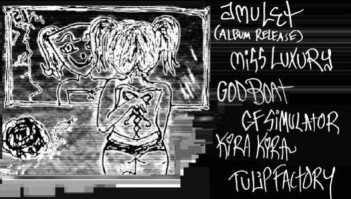 amulet
(ALBUM RELEASE)
miss LUXURY
GOD BOAT
GF SIMULATOR
KiRA KiRA
TULIP FACTORY